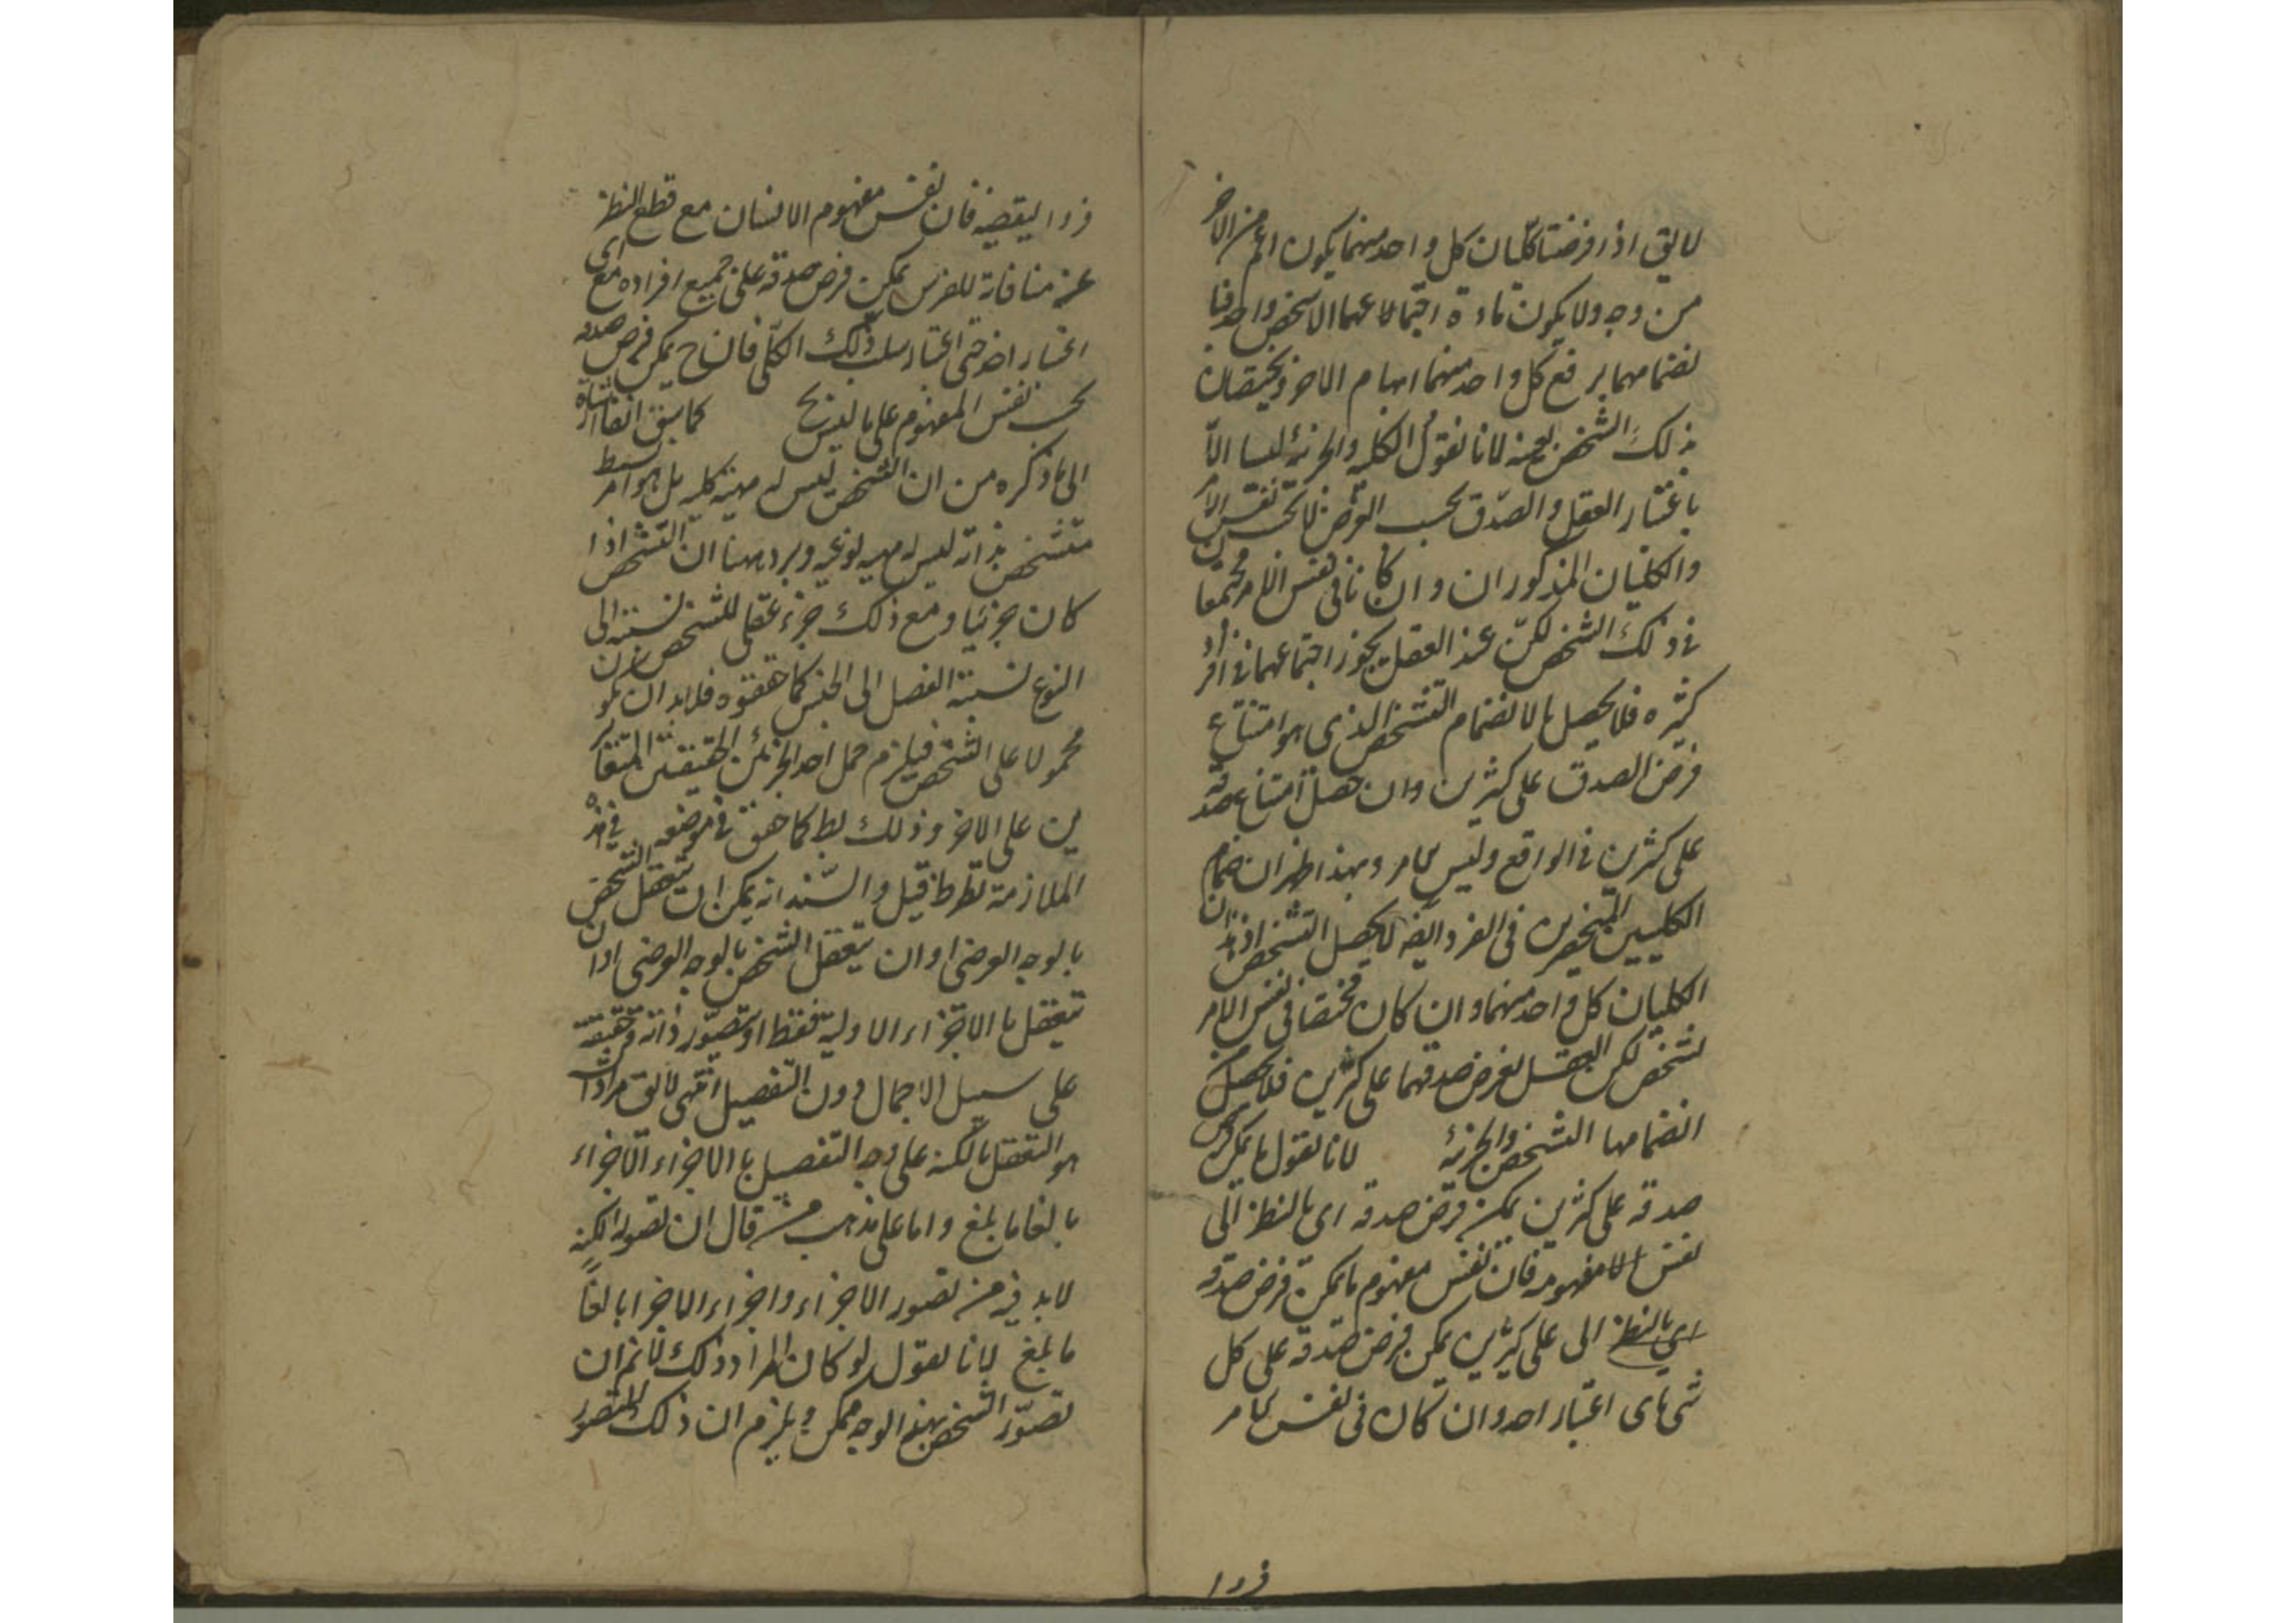 لا يق اذا فرضنا كليان كل واحد منهما يكون اعم من الاخر
من وجه ولا يكون مادة اجتماعهما الا شخص واحد فبا
نضمامهما يرفع كل واحد منهما ابهام الاخر ويختصان
بذلك الشخص بعينه لانا نقول الكلية والجزئية ليسا الا
باعتبار العقل والصدق بحسب الفرض لا بحسب نفس الامر
والكليان المذكوران وان كانا في نفس الامر مجتمعا ن
في ذلك الشخص لكن عند العقل يجوز اجتماعهما في افراد
كثيره فلا يحصل بالانضمام التشخص الذي هو امتناع
فرض الصدق على كثيرين وان حصل امتناع صدقه
على كثيرين في الواقع وليس كما مر وبهذا ظهر ان ضمام
الكليين المنحصرين في الفرد ايضه لا يحصل التشخص اذ ذانك
الكليان كل واحد منهما وان كان مختصا في نفس الامر
بشخص لكن العقل يفرض صدقهما على كثيرين فلا يحصل من
انضمامها الشخص والجزئية لانا نقول ما يمكن فرض
صدقه على كثيرين يمكن فرض صدقه اى بالنظر الى
نفس الا مفهومه فان نفس مفهوم ما يمكن فرض صدقه
اى بالنظر الى على كثيرين يمكن فرض صدقه على كل
شى باى اعتبار احد وان كان في نفس كما مر
فردا
فردا لنقيضه فان نفس مفهوم الانسان مع قطع النظر
عن منافاة للفرس يمكن فرض صدقه على جميع افراده مع اى
اعتبار اخذ حتى اعتبار سلب ذلك الكلى فان ح يمكن فرض صدقه
بحسب نفس المفهوم على ما ليس بح كما سبق انفا اشارة
الى ما ذكره من ان التشخص ليس له مهية كليه بل هو امر بسيط
متشخص بذاته ليس له مهيه نوعيه ويرد ههنا ان التشخص اذا
كان جزئيا ومع ذلك جزء عقلى للشخص نسبته الى
النوع نسبة الفصل الى الجنس كما حققوه فلا بد ان يكون
محمولا على الشخص فيلزم حمل احد الجزئين الحقيقيين المتغاير
ين على الاخر وذلك بط كما حقق في موضعه في هذه
الملازمة نظر ظ قيل والسند انه يمكن ان يتعقل التشخص
بالوجه العرضى او ان يتعقل الشخص بالوجه العرضى او ان
يتعقل بالاجزاء الاولية فقط او يتصور ذاته وحقيقته
على سبيل الاجمال دون التفصيل انتهى لا يق مراد الش
هو التعقل بالكنه على وجه التفصيل بالاجزاء الاجزاء
بالغا ما بلغ واما على مذهب من قال ان تصور الكنه
لا بد فيه من تصور الاجزاء واجزاء الاجزا بالغاً
ما بلغ لانا نقول لو كان المراد ذلك لا نم ان
تصور الشخص بهذا الوجه ممكن ويلزم ان ذلك المتصور